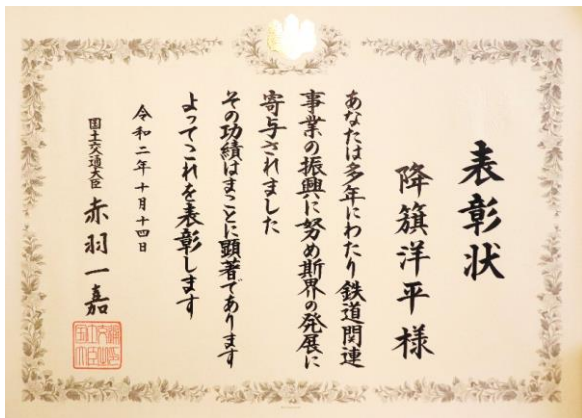 表彰状
降籏洋平様
あなたは多年にわたり鉄道関連
事業の振興に努め斯界の発展に
寄与されました
その功績はまことに顕著であります
よってこれを表彰します
令和二年十月十四日
国土交通大臣 赤羽一嘉